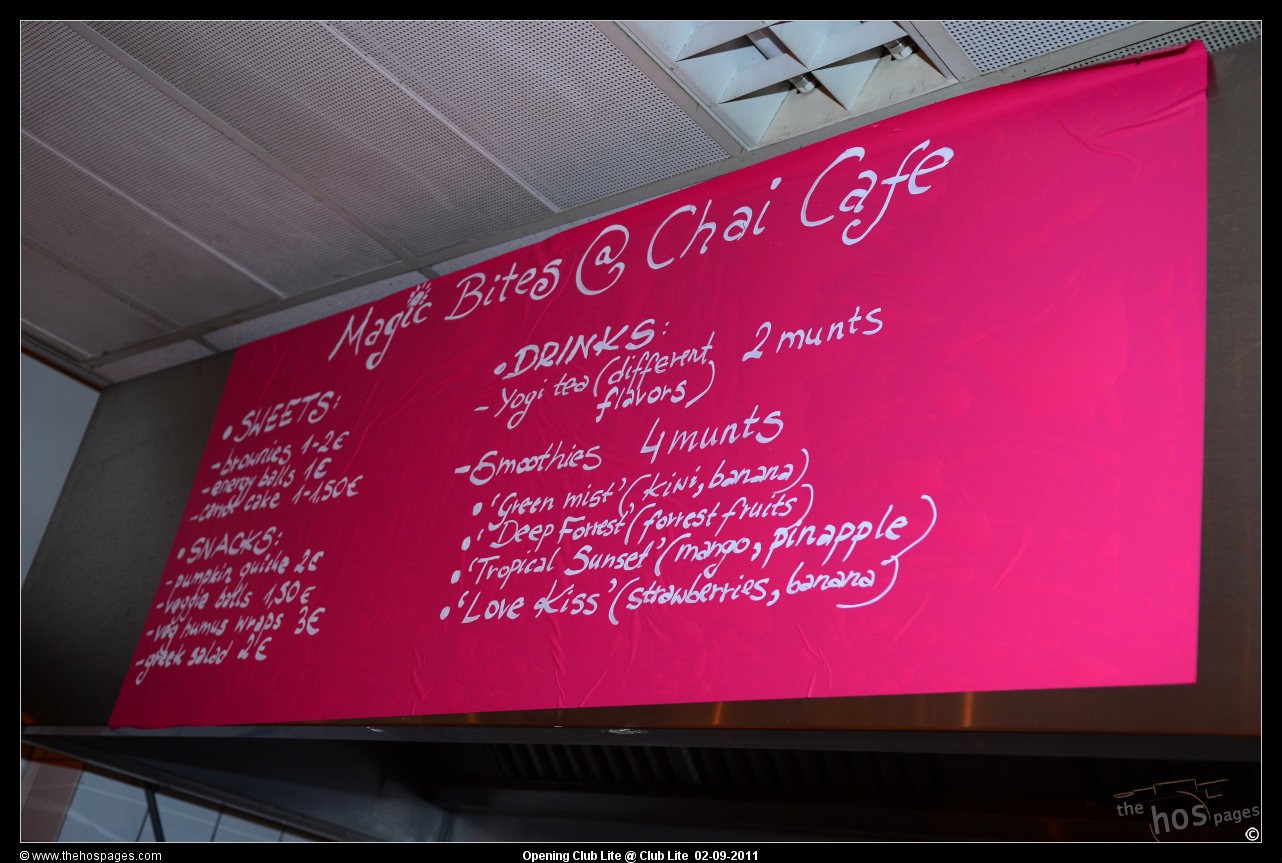 Magic Bites @ Chai Cafe
• SWEETS:
- brownies 1-2€
- energy balls 1€
- carrot cake 1-1,50€
• SNACKS:
- pumpkin quiche 2€
- veggie balls 1,50€
- veg humus wraps 3€
- greek salad 2€
• DRINKS:
- Yogi tea (different flavors) 2 munts
- Smoothies 4 munts
• 'Green mist' (kiwi, banana)
• 'Deep Forrest' (forrest fruits)
• 'Tropical Sunset' (mango, pinapple)
• 'Love Kiss' (strawberries, banana)
the hos pages
©
© www.thehospages.com
Opening Club Lite @ Club Lite 02-09-2011